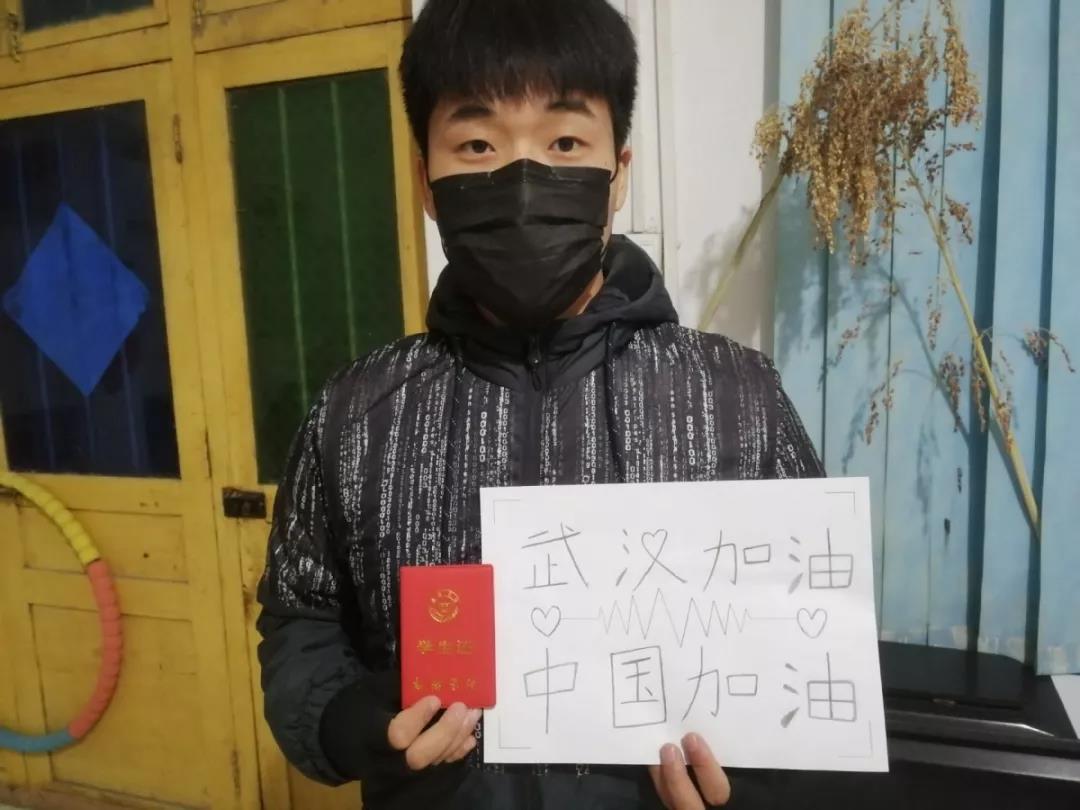 学生证
武汉加油
中国加油